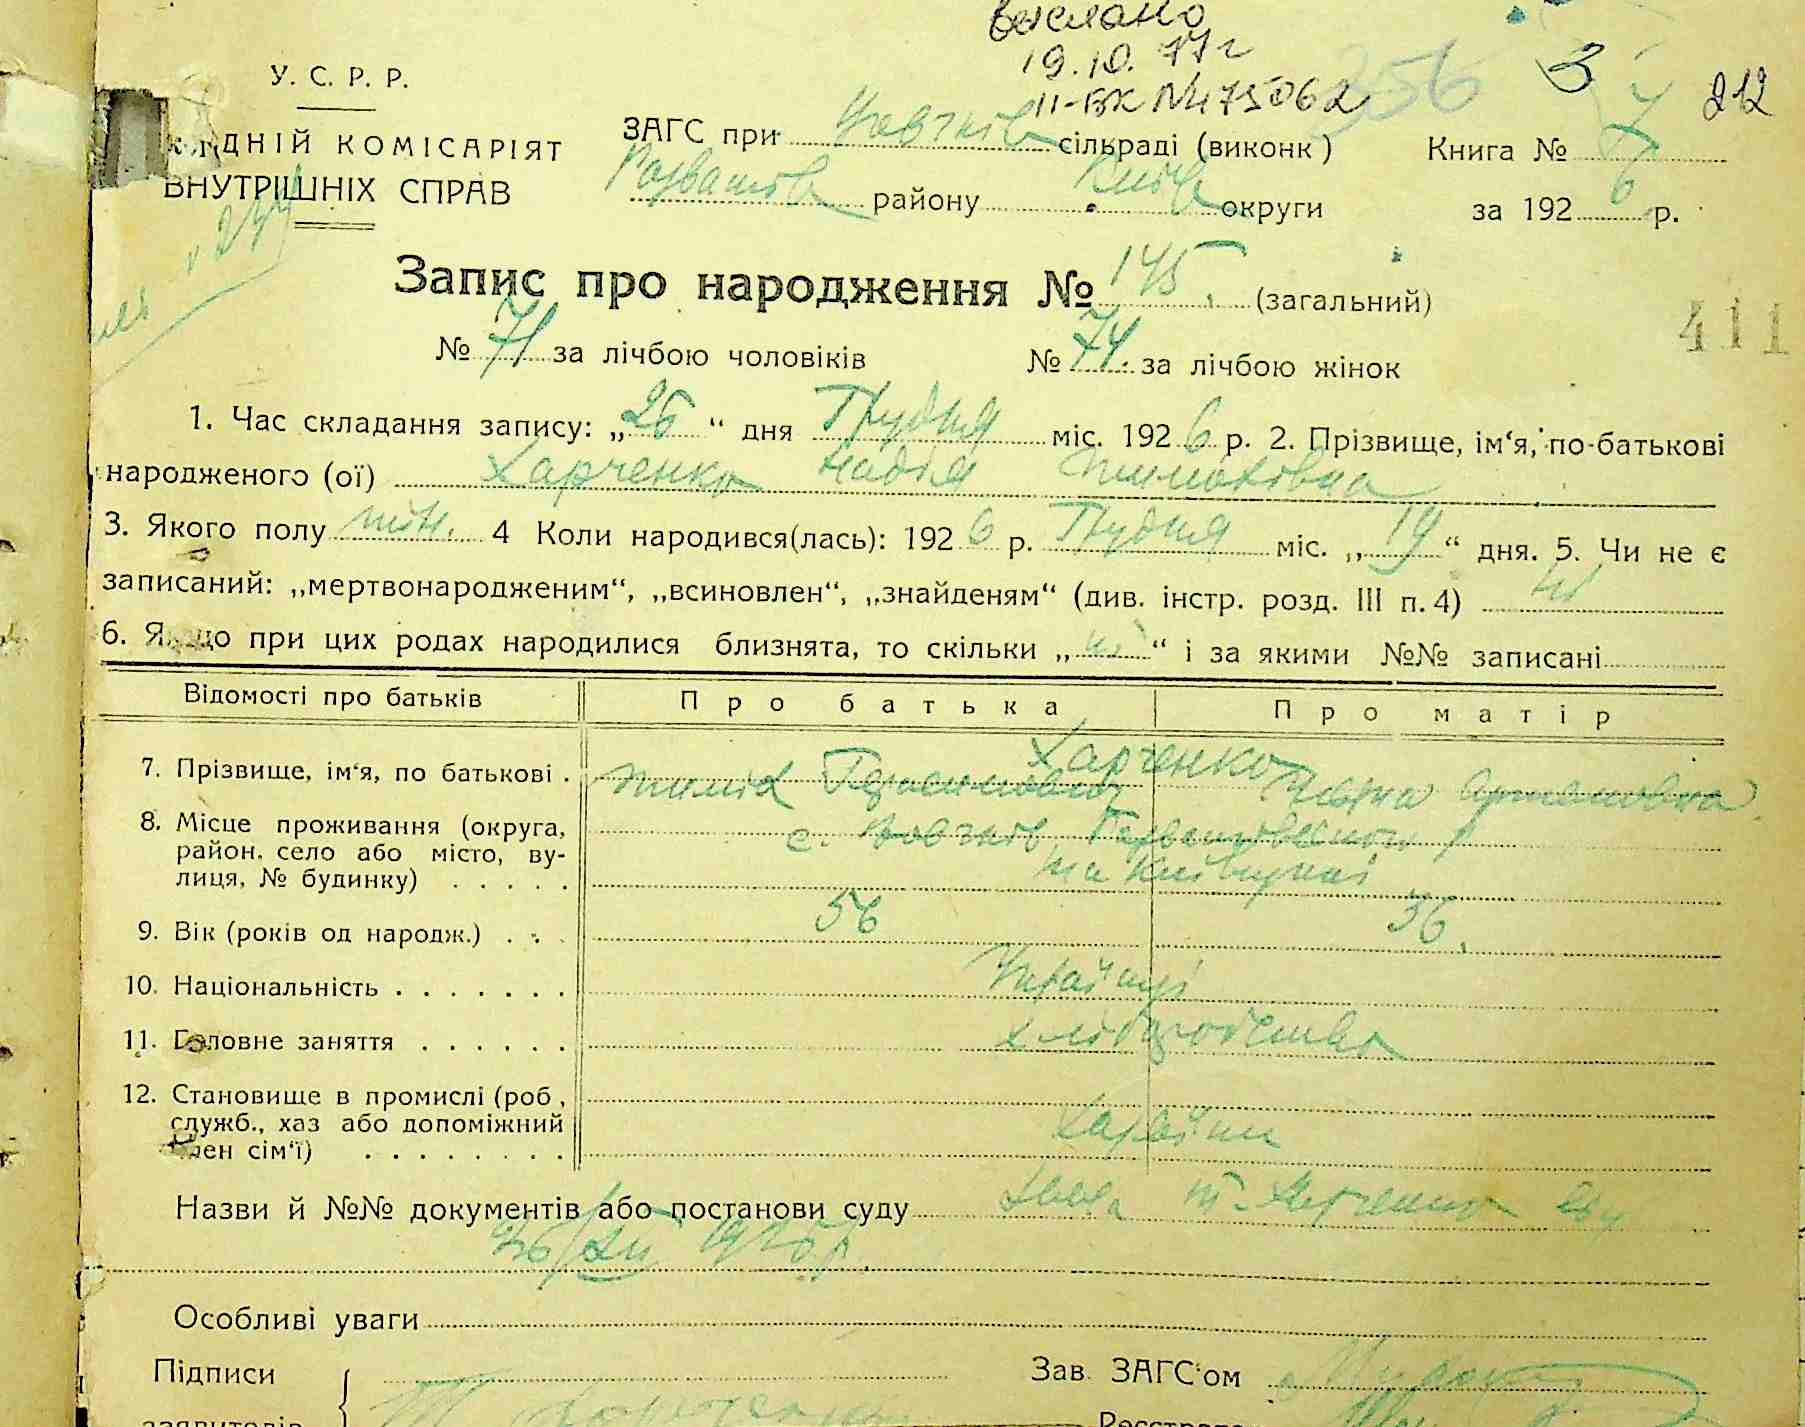 вислано
19.10.77 г
II-БК №475062
356 3 212
У. С. Р. Р.
ДНІЙ КОМІСАРІЯТ
ВНУТРІШНІХ СПРАВ
ЗАГС при Вовчків сільраді (виконк) Книга № 7
району округи за 1926 р.
Запис про народження № 145. (загальний)
411
№ 71 за лічбою чоловіків № 74. за лічбою жінок
1. Час складання запису: „26“ дня Грудня міс. 1926 р. 2. Прізвище, ім‘я, по-батькові
народженого (ої) Харченко Надія Тимохівна
3. Якого полу жін. 4 Коли народився(лась): 1926 р. Грудня міс. „19“ дня. 5. Чи не є
записаний: „мертвонародженим“, „всиновлен“, „знайденям“ (див. інстр. розд. III п. 4) ні
6. Якщо при цих родах народилися близнята, то скільки „ні“ і за якими №№ записані
Відомості про батьків Про батька Про матір
Харченко
7. Прізвище, ім‘я, по батькові . Тиміх Герасимович
8. Місце проживання (округа, с. Вовчків
район. село або місто, ву-
лиця, № будинку) . . . . . на Київщині
9. Вік (років од народж.) . . . 56 36.
10. Національність . . . . . . . Українці
11. Головне заняття . . . . . . хліборобство
12. Становище в промислі (роб,
служб., хаз або допоміжний Хазяїни
член сім‘ї) . . . . . . . . .
Назви й №№ документів або постанови суду
26/XII 1926 р.
Особливі уваги
Підписи Зав. ЗАГС‘ом
заявителів